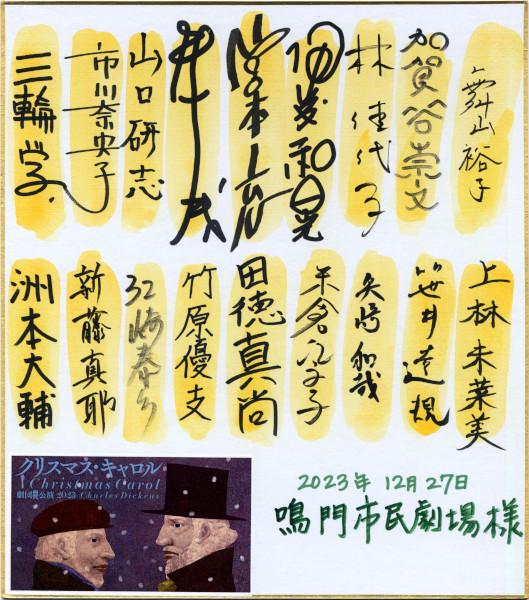 舞山裕子
加賀谷崇文
林佳代子
伊藤和晃
宮本充
牛山茂
山口研志
市川奈央子
三輪学
上林未菜美
笹井達規
矢崎和哉
米倉
田徳真尚
竹原優支
新藤真耶
洲本大輔
クリスマス・キャロル
A Christmas Carol
劇団昴公演 2023 Charles Dickens
2023年 12月27日
鳴門市民劇場様